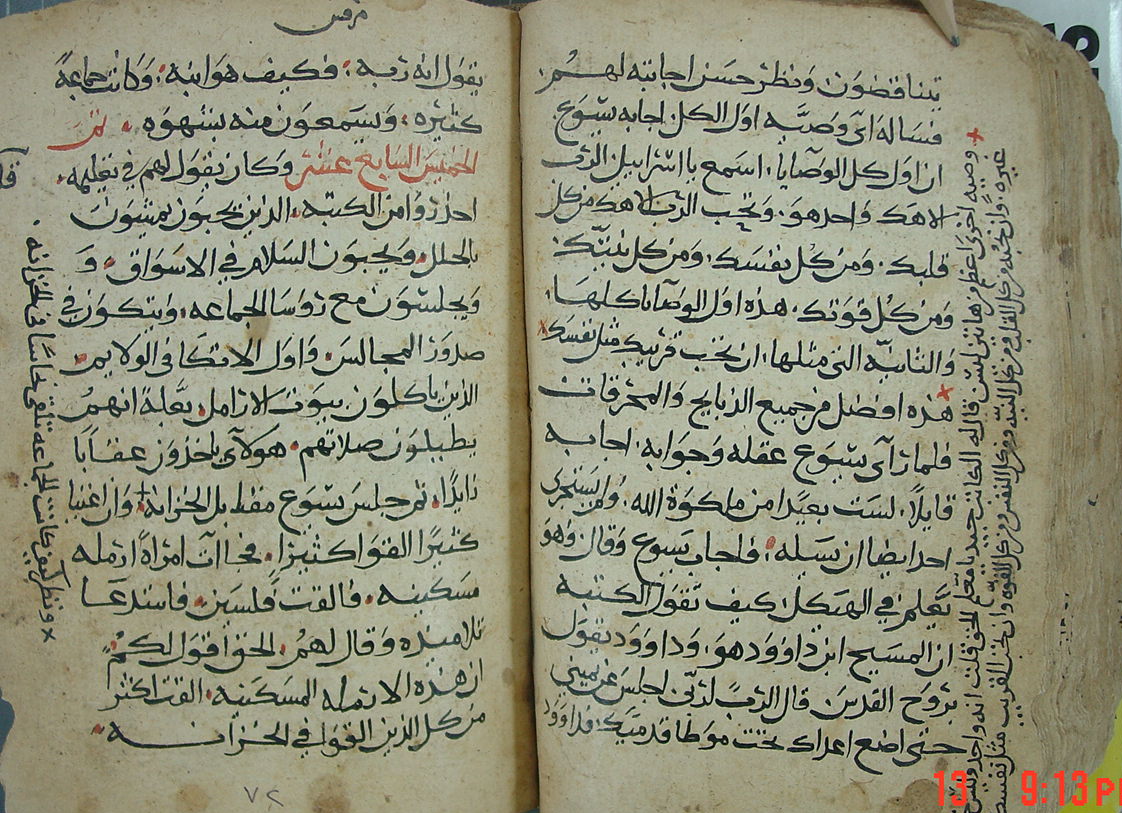 يتناقضون ونظر حسن اجابته لهم.
فساله اي وصيه اول الكل اجابه يسوع
ان اول كل الوصايا. اسمع يا اسراييل الرب
الاهك واحد هو. وتحب الرب الاهك من كل
قلبك. ومن كل نفسك. ومن كل نيتك
ومن كل قوتك. هذه اول الوصايا كلها.
والثانيه التي مثلها. ان تحب قريبك مثل نفسك
هذه افضل من جميع الذبايح والمحرقات
فلما راى يسوع عقله وجوابه. اجابه
قايلا. لست بعيدا من ملكوة الله. ولم يستجري
احد ايضا ان يسيله. فاجاب يسوع وقال وهو
يعلم في الهيكل. كيف تقول الكتبه
ان المسيح ابن داوود هو. وداوود يقول
بروح القدس قال الرب لربي اجلس عن يميني
حتى اضع اعداك تحت موطا قدميك. فداوود
وصيه اخرى اعظم من هاتين ليس قال له الكاتب جيد يا معلم الحق قلت انه واحد وليس
غيره وان تحبه من كل القلب ومن كل النيه ومن كل النفس ومن كل القوه وان تحب القريب مثل نفسك
مرقس
يقول انه ربه. فكيف هو ابنه. وكانت جماعة
كثيره. ويسمعون منه بشهوه.
الخميس السابع عشر وكان يقول لهم في تعليمه.
احذروا من الكتبه. الذين يحبون يمشون
بالحلل. ويحبون السلام في الاسواق. و
ويجلسون مع روسا الجماعه. ويتكون في
صدور المجالس. واول الاتكا في الولايم.
الذين ياكلون بيوت الارامل. بعلة انهم
يطيلون صلاتهم. هولاي ياخذون عقابا
زايدا. ثم جلس يسوع مقابل الخزانه. وان اغنيا
كثيرا القوا كثيرا. فجاات امراة ارمله
مسكينه. فالقت فلسين. فاستدعا
تلاميذه وقال لهم. الحق اقول لكم
ان هذه الارمله المسكينه. القت اكثر
من كل الذين القوا في الخزانه.
ونظر كيف كانت الجماعه تلقي نحاسا في الخزانه
٧٢
13 9:13